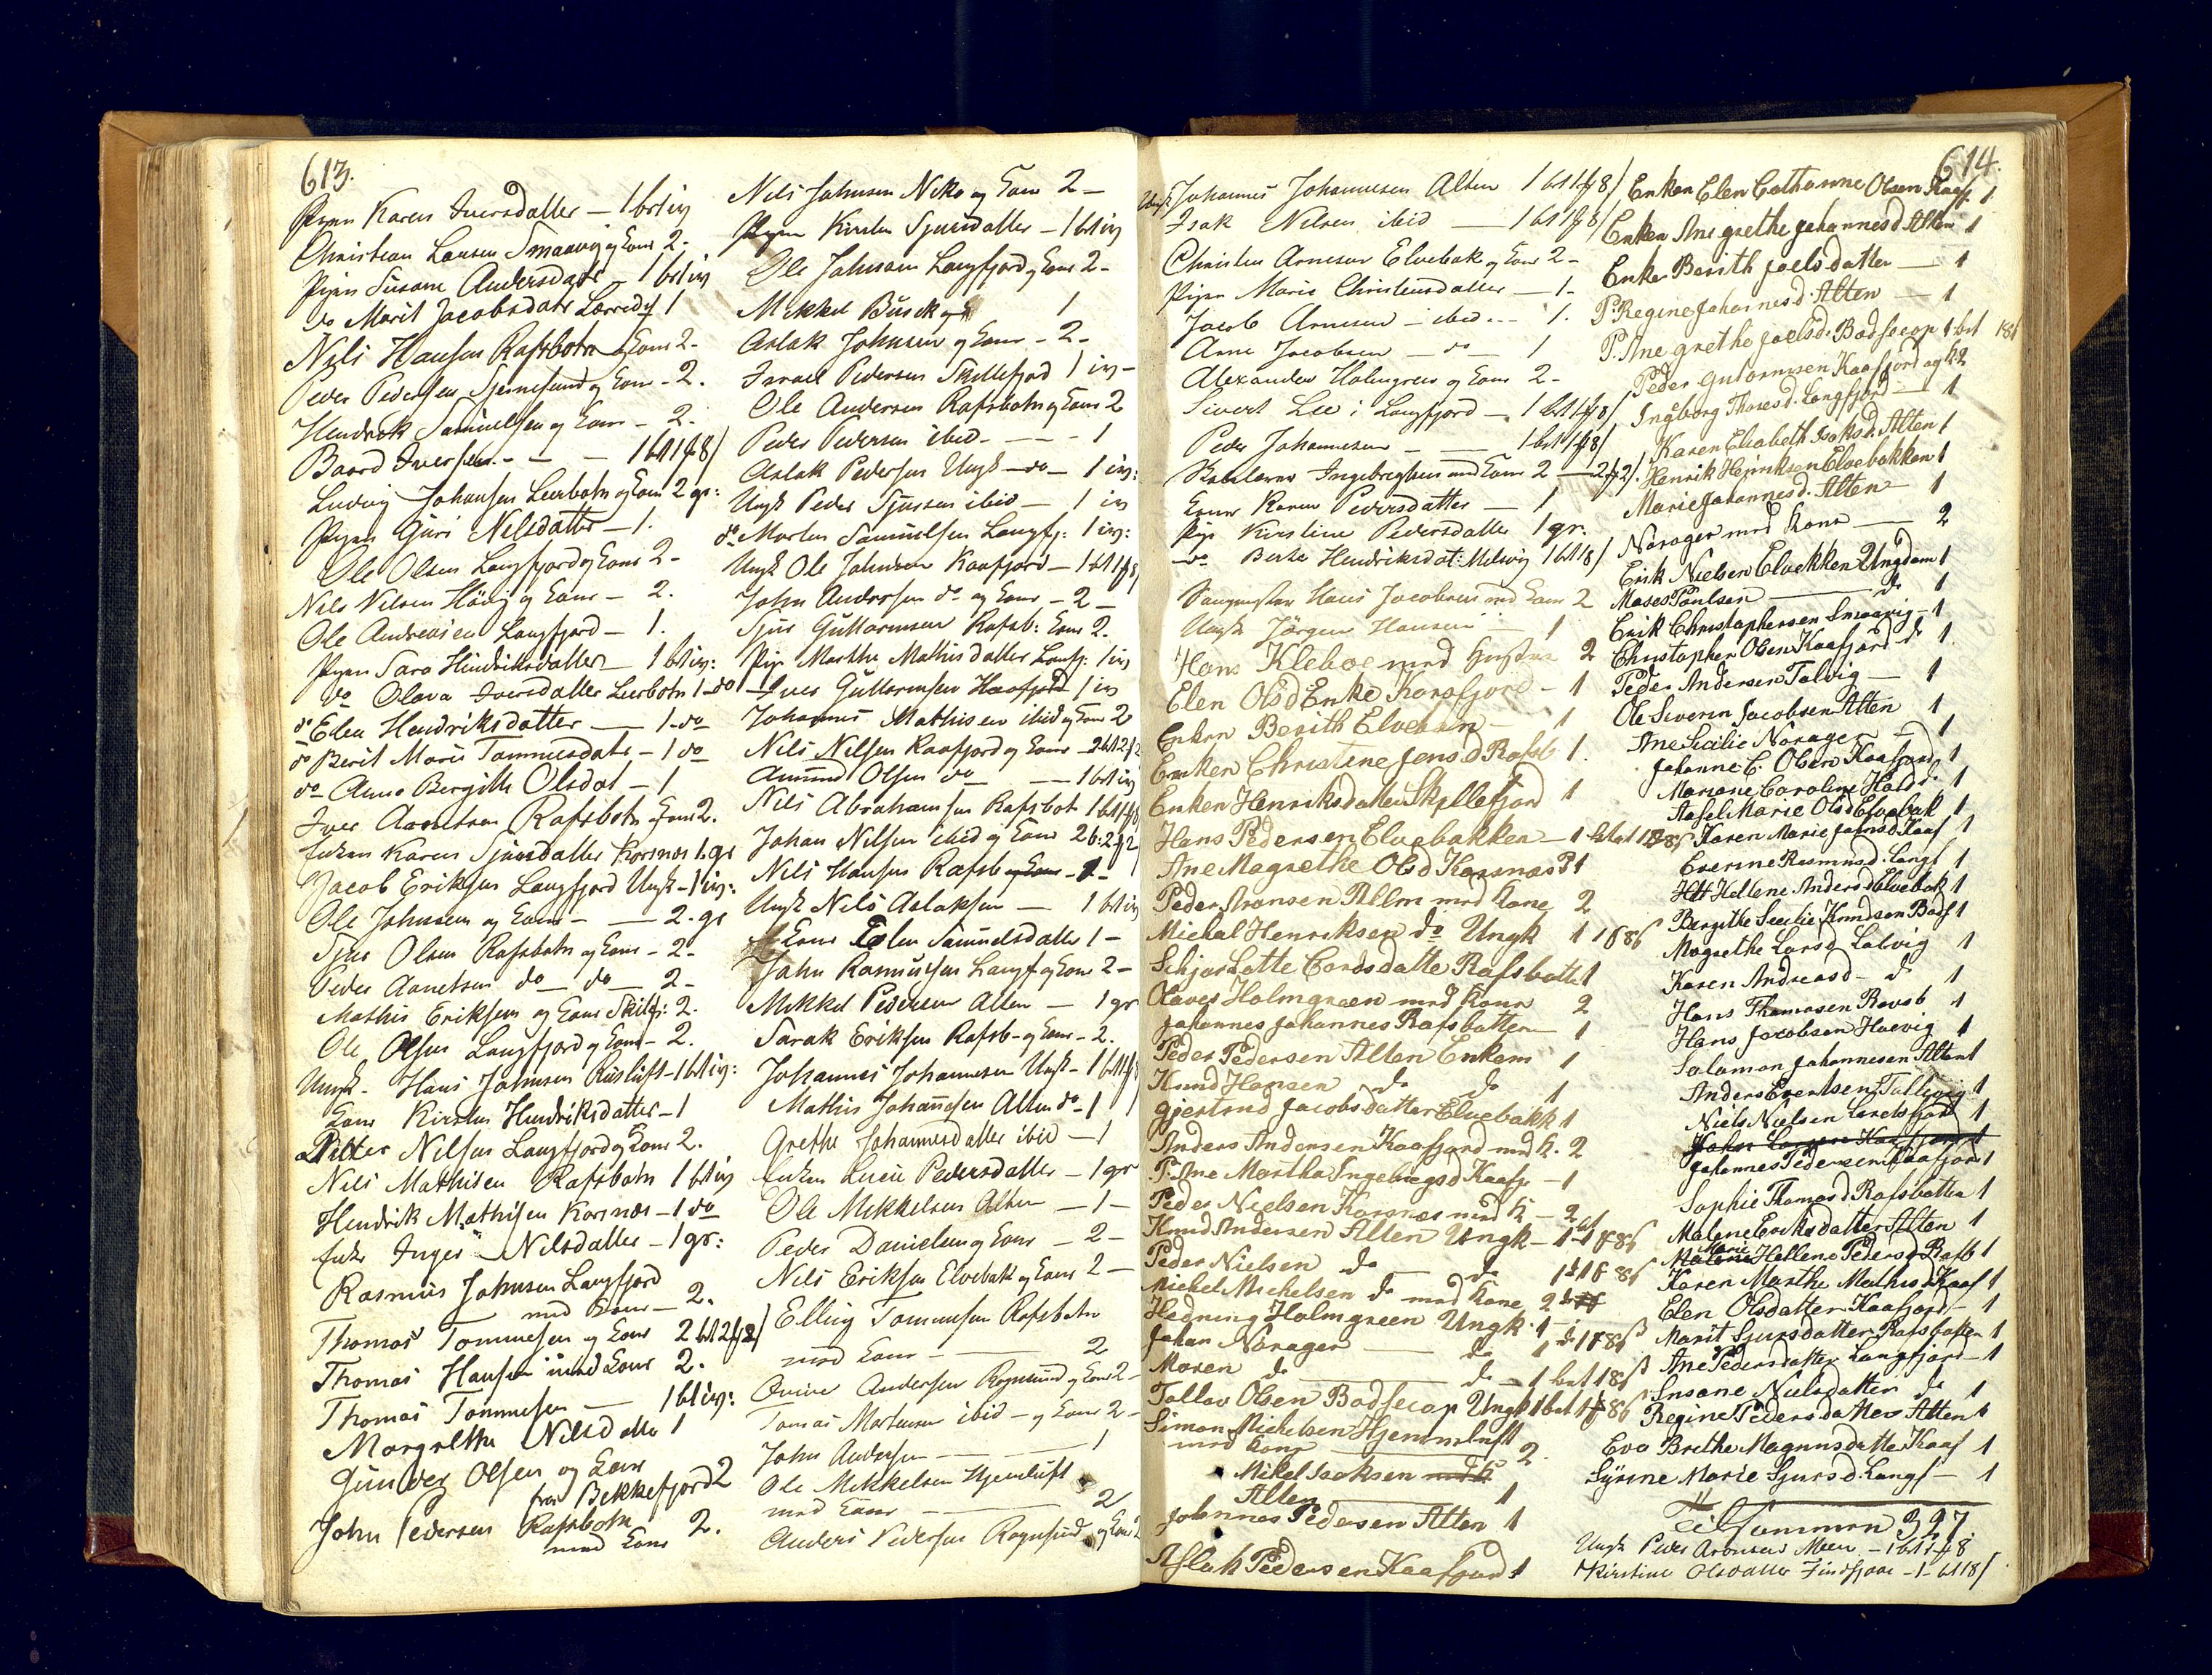 613.
Pigen Karen Iversdatter — 1 bet iv
Christian Larsen Smaavig og Kone 2.
Pigen Susane Andersdatr — 1 bet iv
do Marit Jacobsdatr 1
Nils Hansen Rafsbotn og Kone 2 -
Peder Pedersen Stjernesund og Kone - 2.
Hendrik Samuelsen og Kone - 2.
Baard Iversen - - - 1 bt 1 f 8 /
Ludvig Johansen Leerbotn og Kone 2 gr:
Pigen Guri Nilsdatter — 1.
Ole Olsen Langfjord og Kone 2 -
Nils Nilsen og Kone - 2.
Ole Andreasen Langfjord — 1.
Pigen Sara Hendriksdatter — 1 bt iv:
do Olava Iversdatter Leerbotn 1 - do
do Elen Hendriksdatter — 1 - do
do Berit Maris Tommesdatr - 1 do
do Anne Bergithe Olsdat - 1
Iver Anretsen Rafsbotn og Kone 2.
Enken Karen Sjursdatter Korsnæs 1. gr
Jacob Eriksen Langfjord Ungk - 1 iv:
Ole Johnsen og Kone - — 2. gr
Sjur Olsen Rafsbotn og Kone - 2 -
Peder Aanetsen do — do — 2 -
Mathis Eriksen og Kone Skilfj: 2.
Ole Olsen Langfjord og Kone - 2.
Ungk - Hans Johnsen - 1 bt iv:
Kone Kirsten Hendriksdatter - 1
Petter Nilsen Langfjord og Kone 2.
Nils Mathisen Rafsbotn 1 bt iv
Hendrik Mathisen Korsnæs - 1 do
Enke Inger Nilsdatter - 1 gr:
Rasmus Johnsen Langfjord
med Kone — 2.
Thomas Tommesen og Kone 2 bt 2 f 2 /
Thomas Hansen med Kone 2.
Thomas Tommesen — 1 bt iv:
Margrethe Nilsdatter 1
Gunder Olsen og Kone
fra Bekkefjord 2
John Pedersen Rafsbotn
med Kone 2.
Nils Johnsen Niko og Kone 2 —
Pigen Kirsten Sjursdatter — 1 bt iv
Ole Johnsen Langfjord og Kone 2 -
Mikkel Busck 1
Aslak Johnsen og Kone - 2 -
Israel Pedersen Skillefjord 1 iv -
Ole Andersen Rafsbotn og Kone 2
Peder Pedersen ibid - - - - 1
Aslak Pedersen Ungk — do — 1 iv:
Ungk Peder Sjursen ibid — 1 iv
do Morten Samuelsen Langfj: 1 iv:
Ungk Ole Johnsen Kaafjord — 1 bt 1 f 8
John Andersen do og Kone - 2 -
Sjur Guttormsen Rafsb: Kone 2.
Pige Marthe Mathisdatter Langfj: 1 iv
Iver Guttormsen Kaafjord 1 iv
Johannes Mathisen ibid og Kone 2
Nils Nilsen Kaafjord og Kone - 2 bt 2 f 2
Amund Olsen do — 1 bt iv
Nils Abrahamsen Rafsbot 1 bt 1 f 8
Johan Nilsen ibid og Kone 2 b: 2 f 2
Nils Hansen Rafsb og Kone - 1 -
Ungk Nils Aslaksen — 1 bt iv
Kone Elen Samuelsdatter 1 -
John Rasmusen Langf og Kone 2 -
Mikkel Pedersen Alten — 1 gr
Sarak Eriksen Rafsb - og Kone - 2.
Johannes Johannesen Ungk - 1 bt 1 f 8
Mathis Johannesen Alten do - 1
Grethe Johannesdatter ibid — 1
Enken Lucie Pedersdatter — 1 gr
Ole Mikkelsen Alten — 1 -
Peder Danielsen og Kone — 2 -
Nils Eriksen Elvebak og Kone 2 -
Elling Tommesen Rafsbotn
med Kone — 2
Andersen Rognsund og Kone 2 -
Tomas Mortensen ibid - og Kone 2 -
John Andersen — 1
Ole Mikkelsen Hjemluft
med Kone — 2
Anders Pedersen Rognsund og Kone 2
614.
Ungk Johannes Johannesen Alten 1 bt 1 f 8 /
Isak Nilsen ibid — 1 bt 1 f 8 /
Christen Arnesen Elvebak og Kone 2 -
Pigen Maris Christensdatter — 1 -
Jacob Arnesen — ibid - - 1.
Arne Jacobsen — do — 1
Alexander Holmgren og Kone 2 -
Sivert Lee i Langfjord — 1 bt 1 f 8 /
Peder Johannesen — 1 bt 1 f 8 /
Skolelærer Ingebregtsen med Kone 2 — 2 f 2 /
Kone Karen Pedersdatter — 1
Pige Kirstine Pedersdatter 1 gr.
do Berte Hendriksdat: Melsvig 1 bt 18 /
Hans Jacobsen med Kone 2
Ungk Jörgen Hansen — 1
Hans Kleboe med Hustru 2
Elen Olsd Enke Korsfjord - 1
Enken Berith Elvebak — 1
Enken Christine Jensd Rafsb 1.
Enken Henriksdatter Skillefjord 1
Hans Pedersen Elvebakken — 1
Ane Magrethe Olsd Korsnæs P 1
Peder Aronsen Alten med Kone 2
Michel Henriksen do Ungk 1 1 f 8 ß
Lotte Cordsdatte Rafsbotten 1
Olaves Holmgreen med Kone 2
Johannes Johannes Rafsbotten 1
Peder Pedersen Alten Enkem 1
Knud Hansen do do 1
Gjertrud Jacobsdatter Elvebakk 1
Anders Andersen Kaafjord med K. 2
P. Ane Martha Ingebregsd Kaafj — 1
Peder Nielsen Korsnæs med K — 2
Knud Andersen Alten Ungk — 1 bt 1 f 8 ß
Peder Nielsen do — do 1 bt 1 f 8 ß
Michel Michelsen do med Kone 2
Hedning Holmgreen Ungk 1
Johan Norager — do 1 bt 1 f 8 ß
Maren do — do — 1 bet 18 ß
Tollov Olsen Bodsecop Ungk 1 bet 1 f 8 ß
Simon Michelsen Hjemmeluft
med Kone — 2.
Mikel Isaksen med K
Alten — 1
Johnnes Pedersen Alten 1
Aslak Pedersen Kaafjord 1
Enken Elen Cathrinne Olsen Kaaf. 1
Enken Ane grethe Johannesd Alten 1
Enken Berith Joelsdatter — 1
P. Regine Johannesd. Alten — 1
P. Ane grethe Joelsd. Bodsecop 1 bet 18 ß
Peder Gutormsen Kaafjord og K 2
Ingborg Thoresd. Langfjord — 1
Karen Elisabeth Isaksd. Alten 1
Henrik Henriksen Elvebakken 1
Marie Johannesd. Alten — 1
Norager med Kone — 2
Erik Nielsen Elvekken Ungdom 1
Moses Poulsen — do 1
Erik Christophersen Smaavig - 1
Christopher Olsen Kaafjord do 1
Peder Andersen Talvig — 1
Ole Severin Jacobsen Alten 1
Ane Secilie Norager — 1
Johanne C. Olsen Kaafjord 1
Mariane Caroline Hald do 1
Aasel Marie Olsd Elvebak 1
Karen Marie Johnsd Kaaf 1
Everine Rasmusd. Langf 1
Hellene Andersd Elvebak 1
Bergithe Secilie Knudsen Bods 1
Magrethe Larsd Talvig 1
Karen Andreasd — do 1
Hans Thomasen Ravsb 1
Hans Jacobsen Haevig 1
Salamon Johannesen Alten 1
Anders Evertsen Tallevig 1
Niels Nielsen Leretsfjord 1
Johan Larsen Kaafjord 1
Johannes Pedersen Kaafjord 1
Sophie Thomasd Rafsbotten 1
Malene Eriksdatter Alten 1
Marie
Malene Hellene Pedersd Rafb 1
Karen Marthe Mathisd Kaaf 1
Elen Olsdatter Kaafjord — 1
Marit Sjursdatter Rafsbotten 1
Ane Pedersdatter Langfjord — 1
Susane Nielsdatter do 1
Regine Pedersdatter Alten 1
Eva Brethe Magnusdatte Kaaf 1
Syrine Marie Sjursd. Langf — 1
Tilsammen 397.
Ungk Peder Aronsen — 1 bt 1 f 8
Kirstine Olsdatter — 1 - bt 18 /